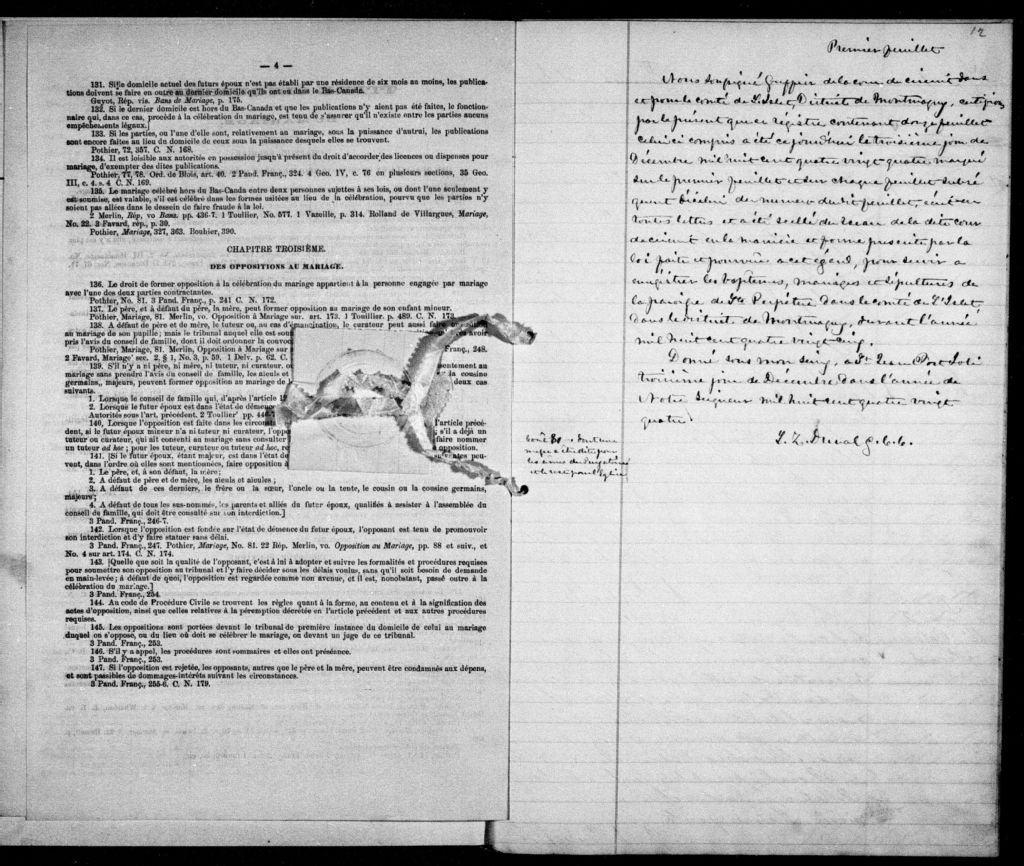 — 4 —
131. Si le domicile actuel des futurs époux n'est pas établi par une résidence de six mois au moins, les publica-
tions doivent se faire en outre au dernier domicile qu'ils ont eu dans le Bas-Canada.
Guyot, Rép. vis. Bans de Mariage, p. 175.
132. Si le dernier domicile est hors du Bas-Canada et que les publications n'y aient pas été faites, le fonction-
naire qui, dans ce cas, procède à la célébration du mariage, est tenu de s'assurer qu'il n'existe entre les parties aucuns
empêchements légaux.]
Pothier, 72, 357. C. N. 168.
133. Si les parties, ou l'une d'elles, sont, relativement au mariage, sous la puissance d'autrui, les publications
sont encore faites au lieu du domicile de ceux sous la puissance desquels elles se trouvent.
134. Il est loisible aux autorités en possession jusqu'à présent du droit d'accorder des licences ou dispenses pour
mariage, d'exempter des dites publications.
Pothier, 77, 78. Ord. de Blois, art. 40. 2 Pand. Franç., 324. 4 Geo. IV, c. 76 en plusieurs sections, 35 Geo.
III, c. 4. s. 4 C. N. 169.
135. Le mariage célébré hors du Bas-Canda entre deux personnes sujettes à ses lois, ou dont l'une seulement y
est soumise, est valable, s'il est célébré dans les formes usitées au lieu de la célébration, pourvu que les parties n'y
soient pas allées dans le dessein de faire fraude à la loi.
2 Merlin, Rép, vo Bans. pp. 436-7. 1 Toullier, No. 577. 1 Vazeille, p. 314. Rolland de Villargues, Mariage,
No. 22. 3 Favard, rép., p. 39.
Pothier, Mariage, 327, 363. Bouhier, 390.
CHAPITRE TROISIÈME.
DES OPPOSITIONS AU MARIAGE.
136. Le droit de former opposition à la célébration du mariage appartient à la personne engagée par mariage
avec l'une des deux parties contractantes.
Pothier, No. 81. 3 Pand. Franç., p. 241 C. N. 172.
137. Le père, et à défaut du père, la mère, peut former opposition au mariage de son enfant mineur.
Pothier, Mariage, 81. Merlin, vo. Opposition à Mariage sur. art. 173. 1 Toullier. p. 489. C. N. 173.
138. A défaut de père et de mère, le tuteur ou, au cas d'émancipation, le curateur peut aussi faire
au mariage de son pupille; mais le tribunal auquel elle est sou
pris l'avis du conseil de famille, dont il doit ordonner la convoc
Pothier, Mariage, 81. Merlin, Opposition à Mariage sur Franç., 248.
2 Favard, Mariage sec. 2, § 1, No. 3, p. 59. 1 Delv. p. 62. C.
139. S'il n'y a ni père, ni mère, ni tuteur, ni curateur, o
mariage sans prendre l'avis du conseil de famille, les aieuls et la cousine
germains,, majeurs, peuvent former opposition au mariage de deux cas
suivants.
1. Lorsque le conseil de famille qui, d'après l'article
2. Lorsque le futur époux est dans l'état de démence
Autorités sous l'art. précédent. 2 Toullier pp.
140. Lorsque l'opposition est faite dans les l'article précé-
dent, si le futur époux mineur n'a ni tuteur ni curateur, l'oppo s'il a déjà un
tuteur ou curateur, qui ait consenti au mariage sans consulter faire nommer
un tuteur ad hoc; pour les tuteur, curateur ou tuteur ad hoc, opposition.
141. [Si le futur époux, étant majeur, est dans l'état de
vent, dans l'ordre où elles sont mentionnées, faire opposition
1. Le père, et, à son défaut, la mère;
2. A défaut de père et de mère, les aieuls et aieules;
3. A défaut de ces derniers, le frère ou la sœur, l'oncle ou la tente, le cousin ou la cousine germains,
majeurs;
4. A défaut de tous les sus-nommés, les parents et alliés du futur époux, qualifiés à assister à l'assemblée du
conseil de famille, qui doit être consulté sur son interdiction.]
3 Pand. Franç., 246-7.
142. Lorsque l'opposition est fondée sur l'état de démence du futur époux, l'opposant est tenu de promouvoir
son interdiction et d'y faire statuer sans délai.
3 Pand. Franç., 247. Pothier, Mariage, No. 81. 22 Rép. Merlin, vo. Opposition au Mariage, pp. 88 et suiv., et
No. 4 sur art. 174. C. N. 174.
143. [Quelle que soit la qualité de l'opposant, c'est à lui à adopter et suivre les formalités et procédures requises
pour soumettre son opposition au tribunal et l'y faire décider sous les délais voulus, sans qu'il soit besoin de demande
en main-levée; à défaut de quoi, l'opposition est regardée comme non avenue, et il est, nonobstant, passé outre à la
célébration du mariage.]
3 Pand. Franç., 254.
144. Au code de Procédure Civile se trouvent les règles quant à la forme, au contenu et à la signification des
actes d'opposition, ainsi que celles relatives à la péremption décrétée en l'article précédent et aux autres procédures
requises.
145. Les oppositions sont portées devant le tribunal de première instance du domicile de celui au mariage
duquel on s'oppose, ou du lieu où doit se célébrer le mariage, ou devant un juge de ce tribunal.
3 Pand. Franç., 253.
146. S'il y a appel, les procédures sont sommaires et elles ont préséance.
3 Pand. Franç., 253.
147. Si l'opposition est rejetée, les opposants, autres que le père et la mère, peuvent être condamnés aux dépens,
et sont passibles de dommages-intérêts suivant les circonstances.
3 Pand. Franç., 255-6. C. N. 179.
12
Premier feuillet
Nous soussigné Greffier de la cour de circuit dans
et pour le comté de L'Islet, District de Montmagny, certifions
par le présent que ce régistre contenant douze feuillets
celui ci compris a été ce jourd'hui le troisième jour de
Décembre mil huit cent quatre vingt quatre marqué
sur le premier feuillet et sur chaque feuillet subsé
quent du numéro du dit feuillet écrit en
toutes lettres et a été scellé du sceau de la dite cour
de circuit en la manière et forme prescrite par la
loi faite et pourvue a cet égard, pour servir a
enregistrer les baptêmes, mariages et sépultures de
la paroisse de Ste Perpétue dans le comté de L'Islet
dans le District de Montmagny, durant l'année
mil huit cent quatre vingt cinq.
Donné sous mon seing, a St Jean Port Joli
troisième jour de Décembre dans l'année de
Notre Seigneur mil huit cent quatre vingt
quatre.
L. Z. Duval G. C. C.